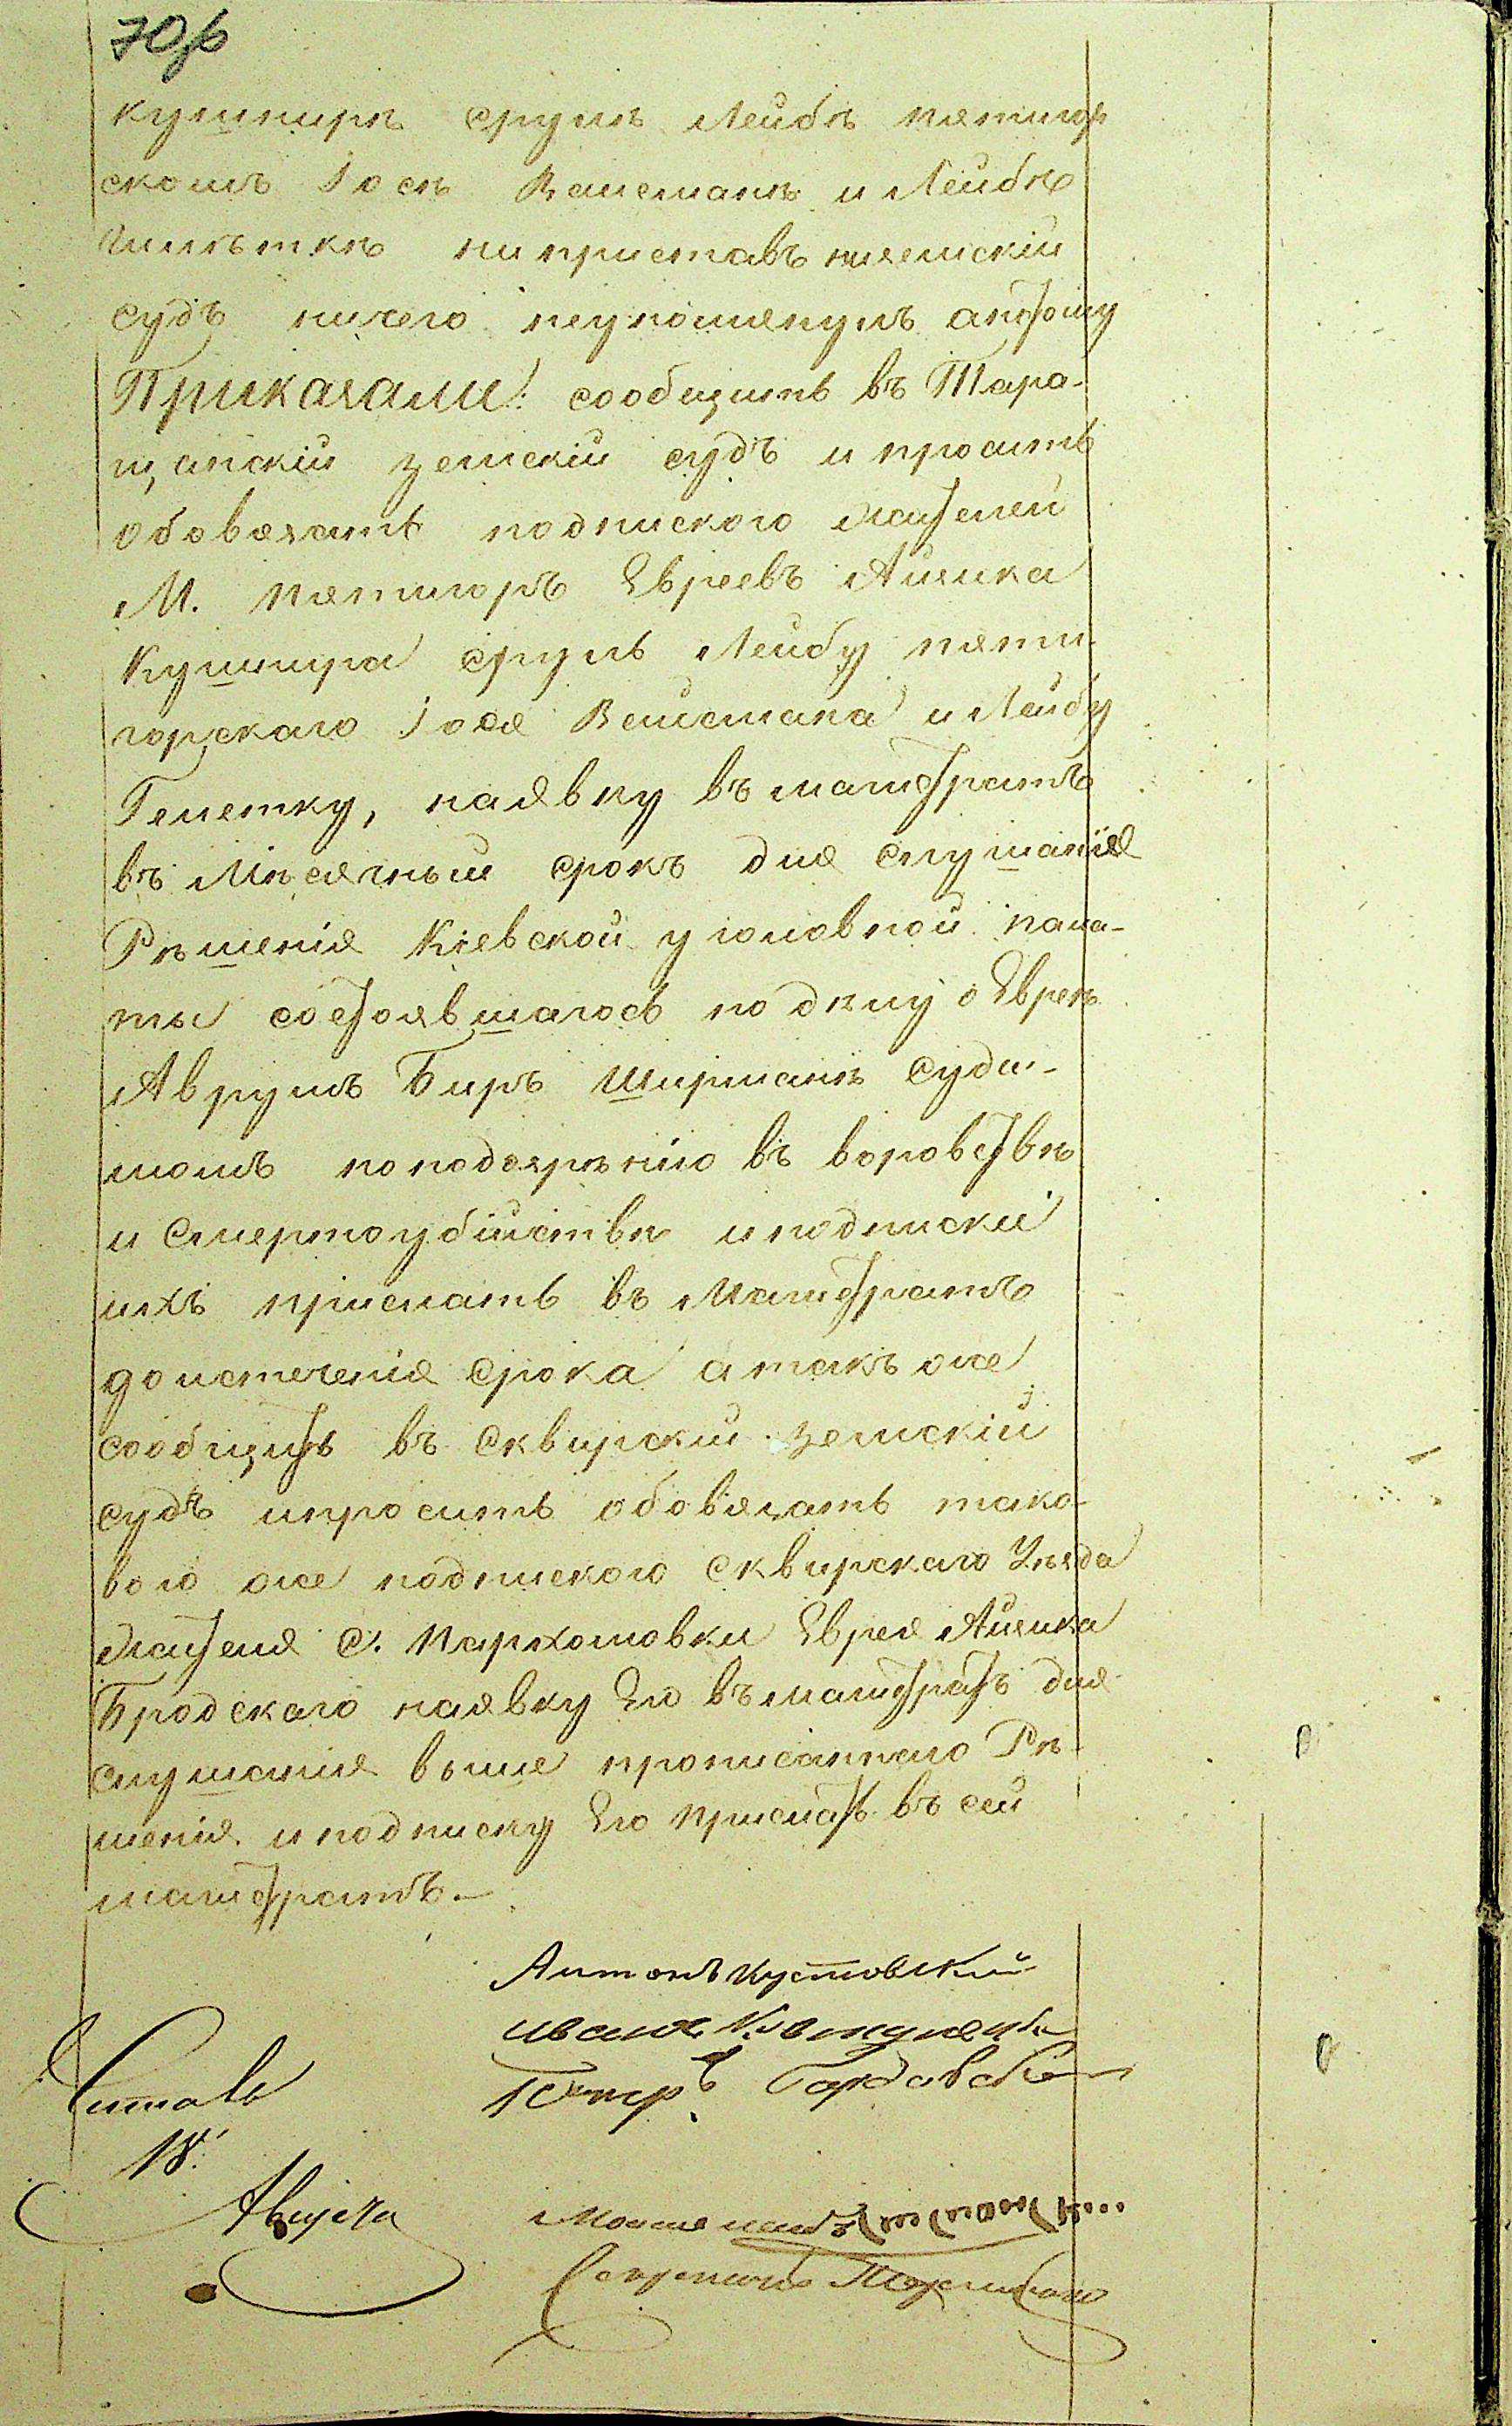 70об
кушнирѣ срулѣ Лейбѣ пятигор
скомъ Іосѣ Вайсманѣ и Лейбѣ
Гилѣткѣ ни приставъ ни земскій
судъ ничего неупомянулъ апотому
Приказали: сообщить въ Тара-
щанскій земскій судъ и просить
обовязать подпискою жителей
М. пятигоръ Евреевъ Айзика
Кушнира сруль Лейбу пяти-
горскаго Іося Вайсмана и Лейбу
Гелетку, наявку въ магистратъ
въ мѣсячный срокъ для слушанія
Рѣшенія Кіевской уголовной пала-
ты состоявшагось по дѣлу о Евреѣ
Аврумъ Беръ Ширманѣ суди-
момъ поподозрѣнію въ воровствѣ
и смертоубійствѣ и подписки
ихъ прислать въ Магистратъ
до истеченія срока а такъ же
сообщить въ сквирскій земскій
судъ и просить обовязать тако-
вою же подпискою сквирскаго Уѣзда
жителя с. Пархомовки Еврея Айзика
Бродскаго наявку Его въ магистратъ для
слушанія выше прописаннаго Рѣ-
шенія и подписку Его прислать въ сей
магистратъ.-
Антонъ Кустовскій
Иванъ
Петръ
Читалъ
18
Августа
Секретарь